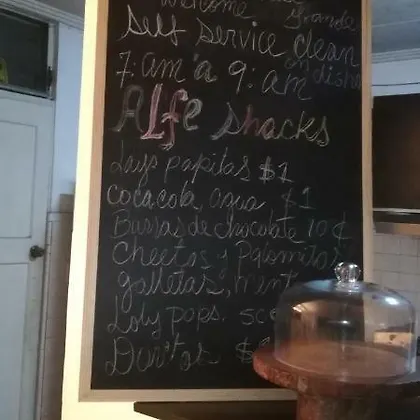 Welcome grande
Self service clean
7:am a 9:am on disha
Alfe Shacks
Lays papitas $1
cocacola agua $1
Barras de chocolate 10¢
Cheetos y Palomitas
galletas, ment
Loly pops. 5c
Duritos $